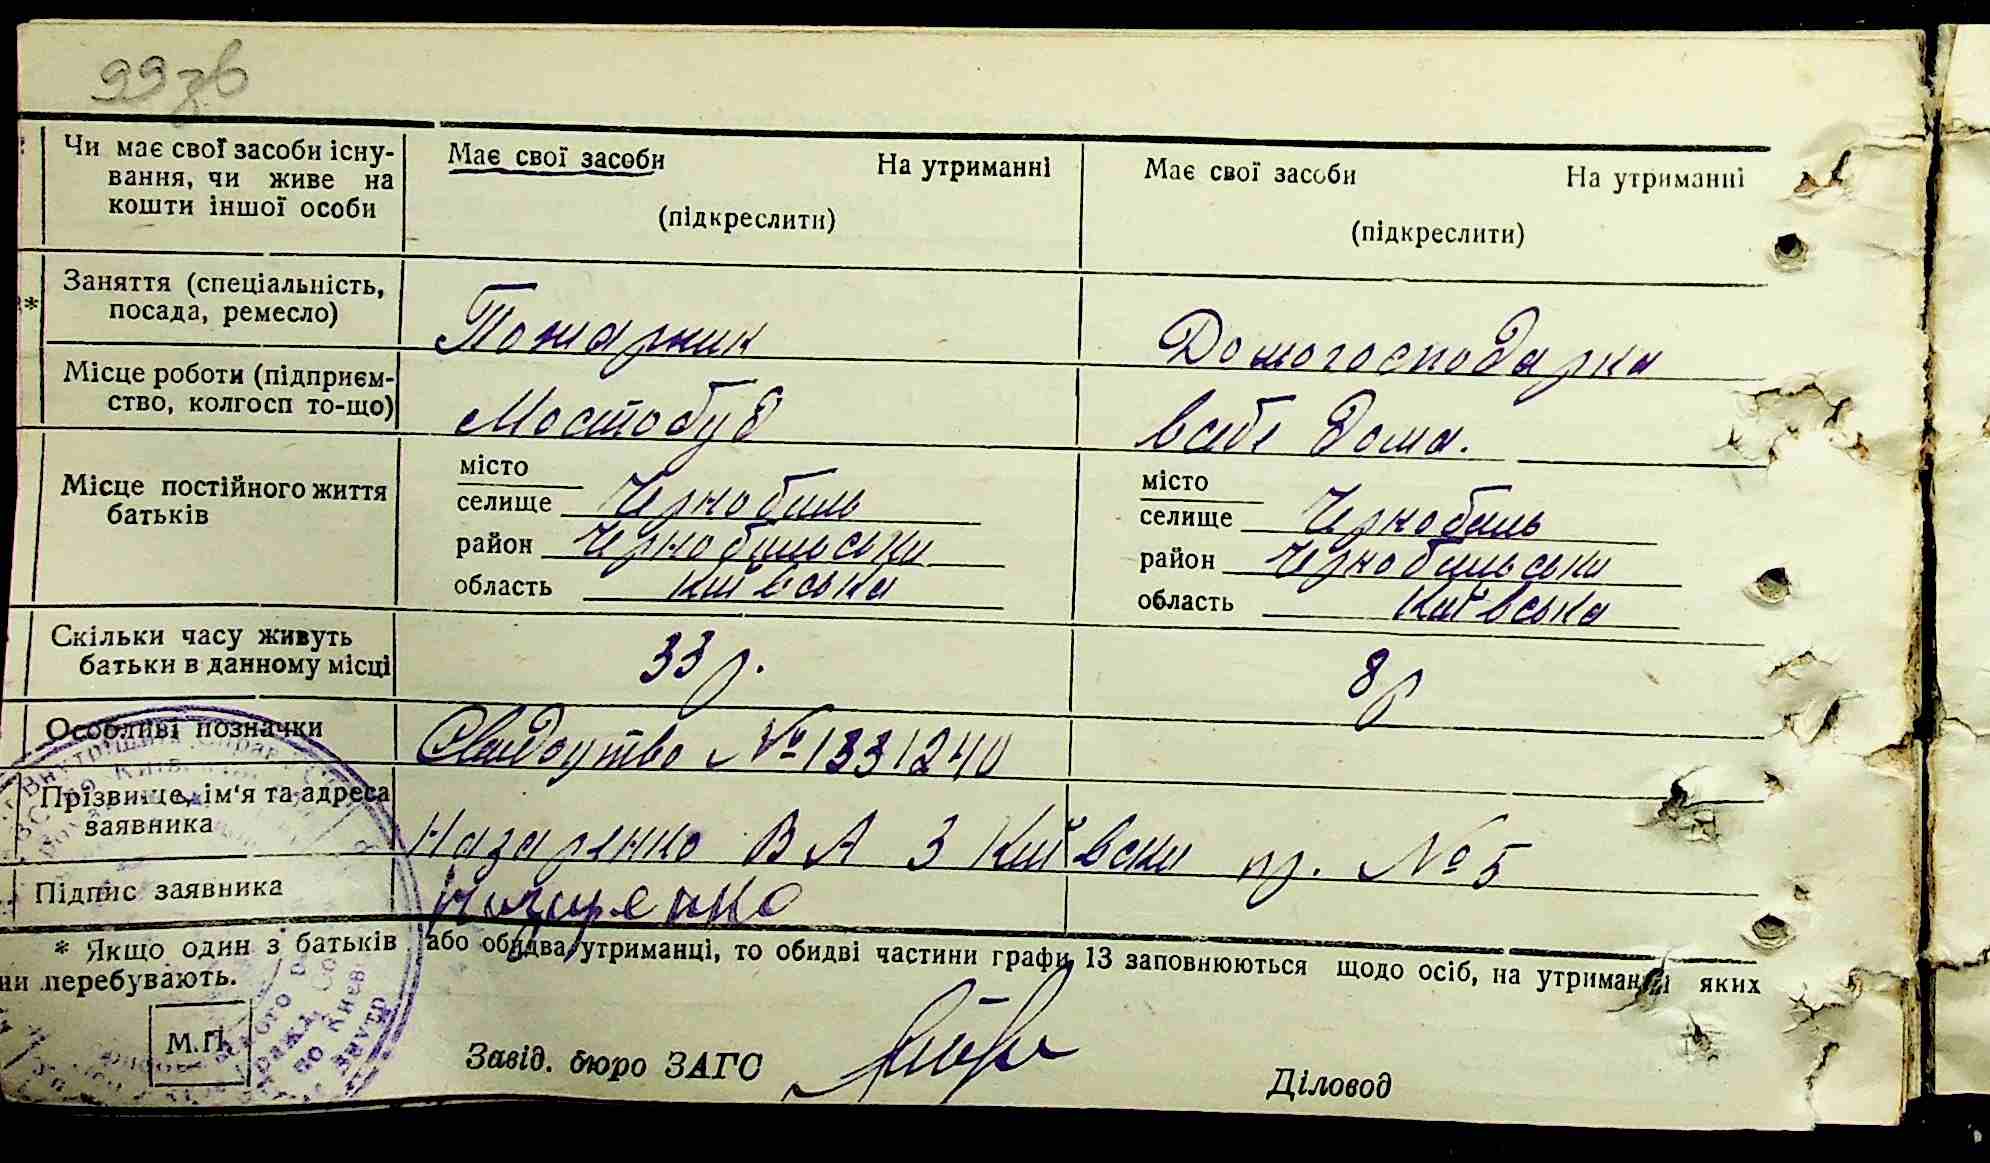 99 зв
Чи має свої засоби існу- Має свої засоби На утриманні Має свої засоби На утриманні
вання, чи живе на
кошти іншої особи (підкреслити) (підкреслити)
Заняття (спеціальність,
посада, ремесло) Пожарник Домогосподарка
Місце роботи (підприєм-
ство, колгосп то-що) Мостобуд в себе дома.
Місце постійного життя
батьків
місто місто
селище Чернобиль селище Чернобиль
район Чернобильски район Чернобильски
область Київська область Київська
Скільки часу живуть
батьки в данному місці 33 р. 8 р
Особливі позначки Свидоцтво № 1331240
Прізвище, ім'я та адреса
заявника Назаренко В А 3 Київски пр. № 5
Підпис заявника Назаренко
* Якщо один з батьків або обидва утриманці, то обидві частини графи 13 заповнюються щодо осіб, на утриманні яких
ни перебувають.
М.П.
Завід. бюро ЗАГС Діловод